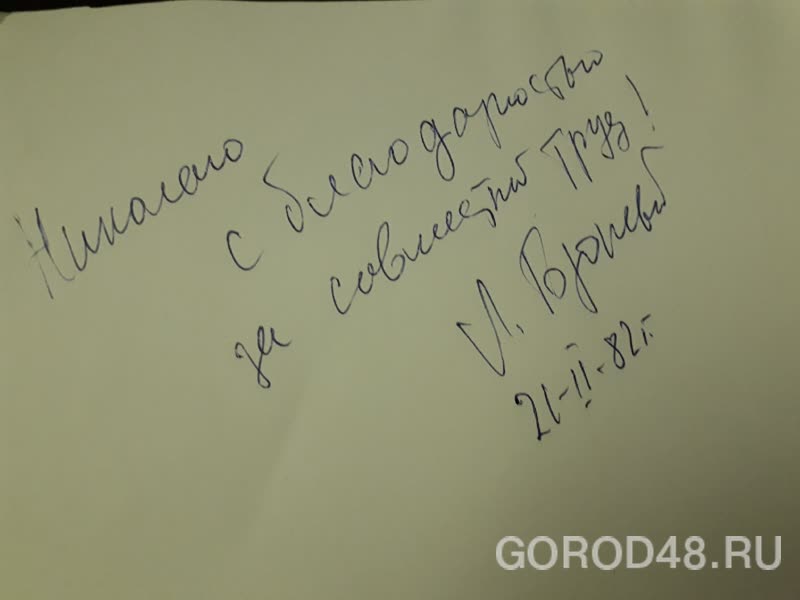 Николаю
с благодарностью
за совместный труд!
Л.
21-II-82г.
GOROD48.RU